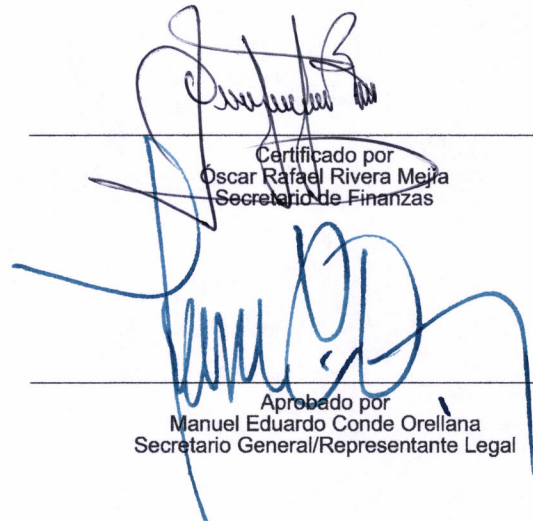 Certificado por
Óscar Rafael Rivera Mejía
Secretario de Finanzas
Aprobado por
Manuel Eduardo Conde Orellana
Secretario General/Representante Legal